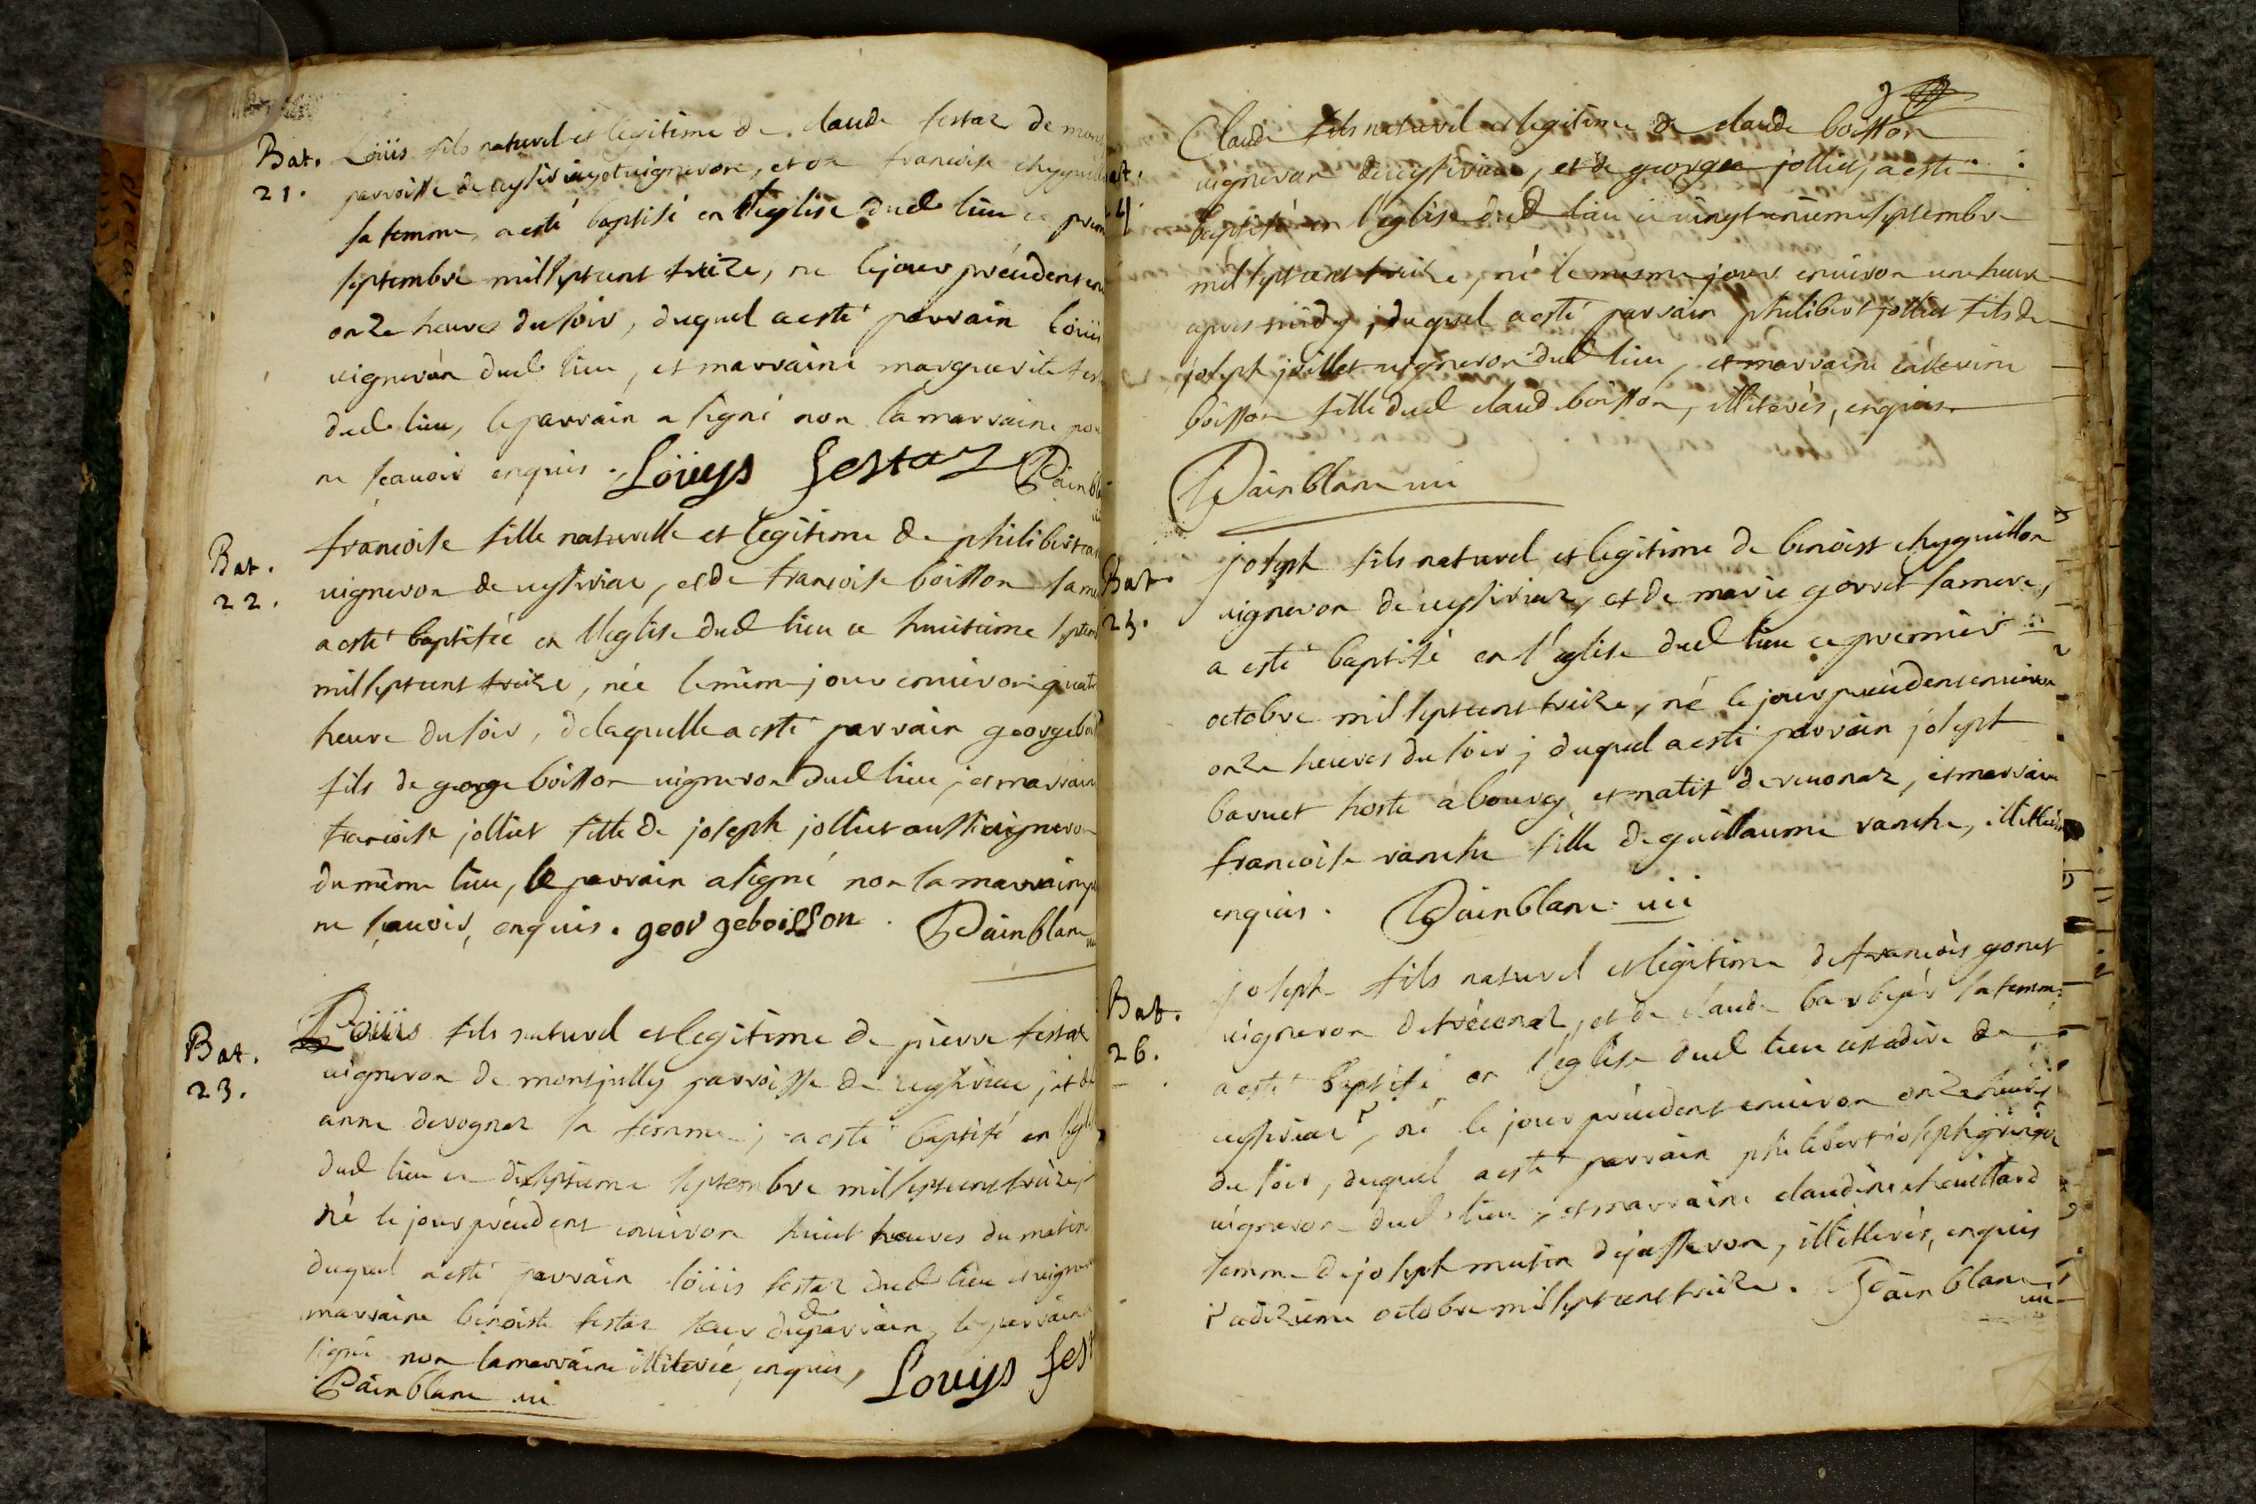 Bat.
21.
Loüis fils naturel et legitime de claude festaz de mont
parroisse de ceyseriaz et vigneron, et de francoise chyguill
sa femme, a esté baptisé en l'eglise dud lieu ce prem
septembre mil sept cent treize, né le jour précédent env
onze heures du soir, duquel a esté parrain Loüis
vigneron dud lieu, et marraine marguerite fest
dud lieu, le parrain a signé non la marraine pou
ne scavoir enquis. Loüys festaz Painbla
Bat.
22.
francoise fille naturelle et legitime de philibert
vigneron de ceyseriaz, et de francoise boisson sa
a esté baptisée en l'eglise dud lieu ce huitieme septem
mil sept cent treize, née le mêm jour environ quatr
heure du soir, de laquelle a esté parrain george boi
fils de george boisson vigneron dud lieu, et marrain
francoise jolliet fille de joseph jolliet aussi vigneron
du même lieu, le parrain a signé non la marraine p
ne scavoir, enquis. george boisson. Painblanc
vic
Bat.
23.
Loüis fils naturel et legitime de pierre festaz
vigneron de montjully parroisse de ceyseriaz, et de
anne devognaz sa femme, a esté baptisé en l'egl
dud lieu ce dixseptieme septembre mil sept cent treize,
né le jour précédent environ huict heures du matin
duquel a esté parrain loüis festaz dud lieu et vigne
marraine benoiste festaz soeur dud parrain, le parrain
signé non la marraine illiterée, enquis, Louys fest
Painblanc vic
Bat.
24.
Claude fils naturel et legitime de claude boisson
vigneron de ceyseriaz, et de george jolliet, a esté
baptisé en l'eglise dud lieu ce vingt septembre
mil sept cent treize, né le mesme jour environ une heure
apres midy, duquel a esté parrain philibert jolliet fils de
joseph jolliet vigneron dud lieu, et marraine catherine
boisson fille dud claud boisson, illiterés, enquis.
Painblanc vic
Bat.
25.
joseph fils naturel et legitime de benoist chyguillon
vigneron de ceyseriaz, et de marie gorret sa mere,
a esté baptisé en l'eglise dud lieu ce premier
octobre mil sept cent treize, né le jour précédent environ
onze heures du soir, duquel a esté parrain joseph
baruet hoste à bourg, et natif de reuonaz, et marraine
francoise ranche fille de guillaume ranche, illitterés
enquis. Painblanc vic
Bat.
26.
joseph fils naturel et legitime de francois gonet
vigneron de tréconaz, et de claude barbyer sa femme
a esté baptisé en l'eglise dud lieu cest a dire de
ceyseriaz, né le jour précédent environ onze heures
du soir, duquel a esté parrain philibert joseph gringoz
vigneron dud lieu, et marraine claudine
femme de joseph mutin de jasseron, illitterés, enquis
ce dizieme octobre mil sept cent treize. Painblanc
vic